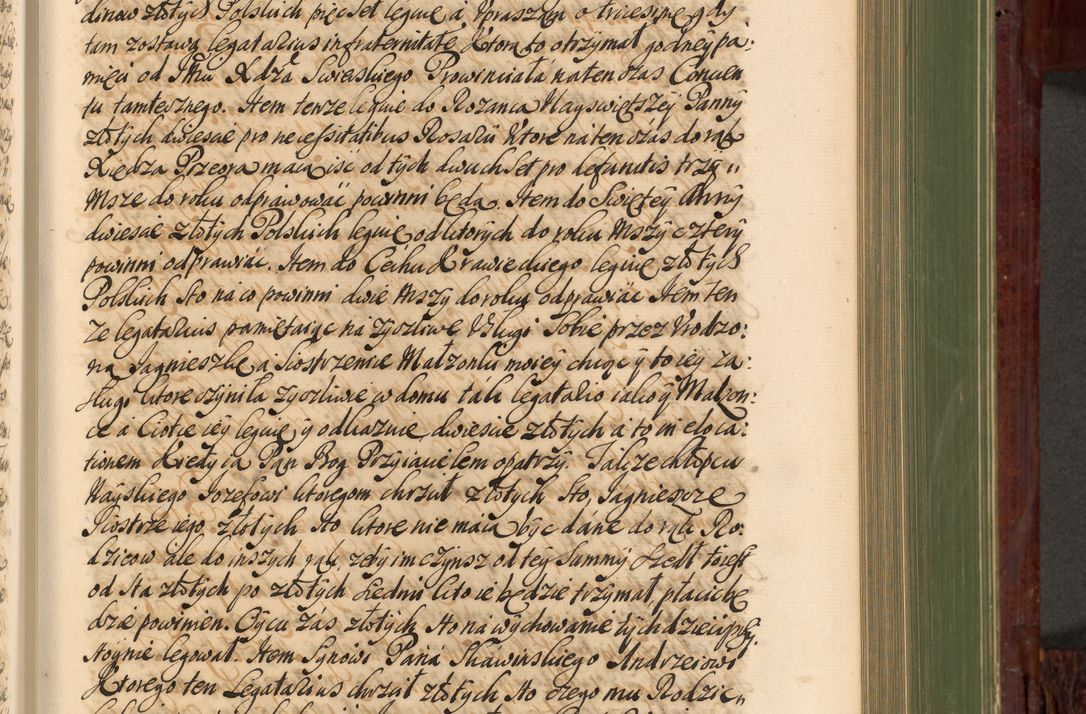 dinow złotych Polskich pięcset leguie á Upraszam o tricesimę gdy
tam zostawa legatarius in fraternitate, Ktorą to otrzymał godney pa:
mięci od Jmci Xdza Prowinciała na ten czas Conven
tu tamecznego. Item tenze leguie do Rozanca Nayswiętszey Panny
złotych dwiescie pro necessitatibus Rosarii ktore na ten czas do rąk
Xiędza Przeora maią iśc od tych dwuch set pro defunctis trzy
Msze do roku odprawować powinni będą. Item do Swiętey Anny
dwiescie złotych Polskich leguie od ktorych do roku Mszy cztery
powinni odprawiác. Item do Cechu Krawieckiego leguie złotych
Polskich sto na co powinni dwie Mszy do roku odprawiác Item ten
ze legatarius pamiętaiąc na zyczliwe Usługi Sobie przez Urodzo:
ną Jagnieszkę a Siostrzenice Małzonki moiey chcąc y to iey za:
sługi ktore czyniła zyczliwie w domu tak legatario iako y Małzon:
ce á Ciotce iey leguie y odkazuie dwiescie złotych á to in eloca:
tionem Kiedy ią Pan Bog Przyiacielem opatrzy. Takze chłopcu
Jozefowi ktoregom chrzcił złotych sto, Jagnieszce
Siostrze iego złotych sto ktore nie maią bydź dáne do rąk Ro:
dzicow ale do inszych rąk zeby im czynsz od tey Summy szedł toiest
od sta złotych po złotych siedmi kto ie będzie trzymał płacic bę
dzie powinien. Oycu zás złotych sto na wychowanie tych dzieci
legował. Item Synowi Paná Skawinskiego Andrzeiowi
Ktorego ten Legatarius chrzcił złotych sto czego mu Rodzic